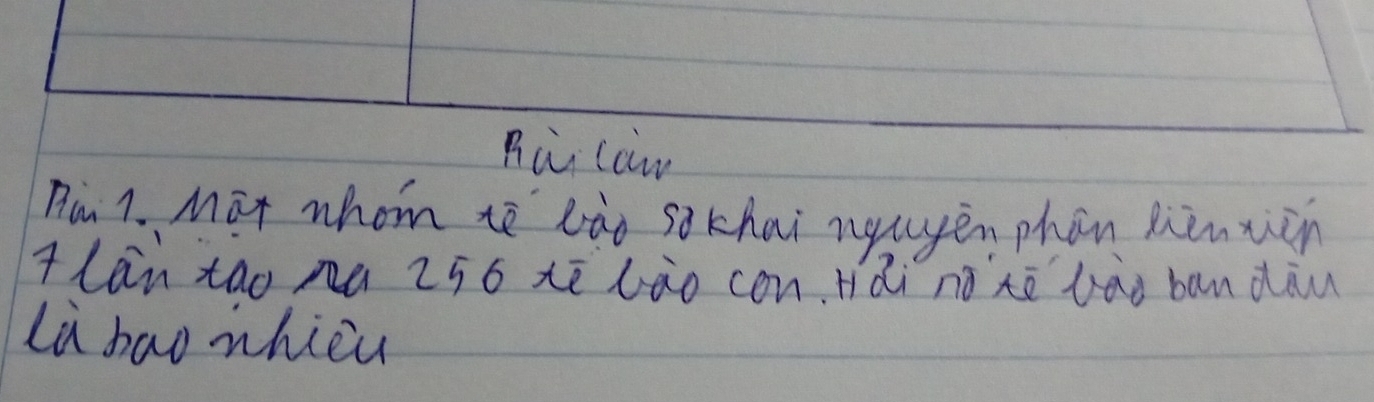 Bài làm
Bài 1. Một nhóm tế bào sơ khai nguyên phân liên tiếp
7 lần tạo ra 256 tế bào con. Hỏi số tế bào ban đầu
là bao nhiêu